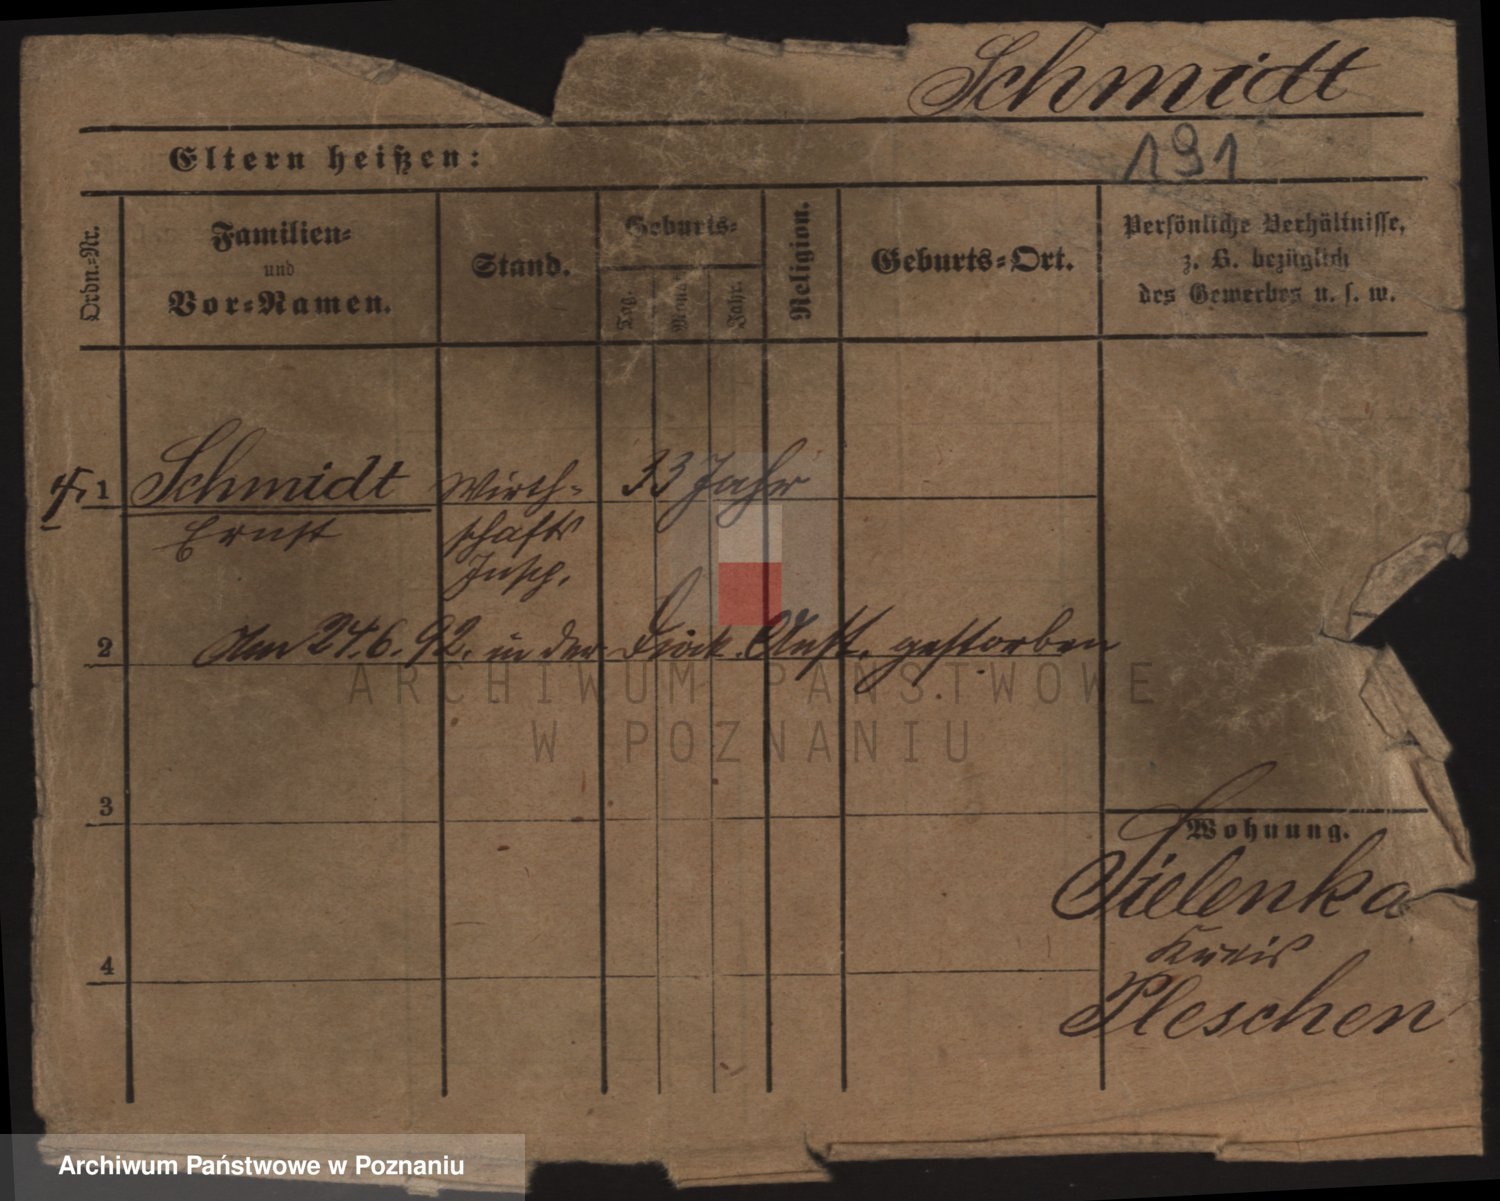 Schmidt
191
Eltern heißen:
Ordn.-Nr.
Familien-
und
Vor-Namen.
Stand.
Geburts-
Tag.
Monat
Jahr.
Religion.
Geburts-Ort.
Persönliche Verhältnisse,
z. B. bezüglich
des Gewerbes u. s. w.
1 Schmidt Wirth- 33 Jahr
Ernst schafts
Insp.
2 Am 24.6.92. in der Diak. Anst. gestorben
ARCHIWUM PAŃSTWOWE
W POZNANIU
3
Wohnung.
Sielenka
Kreis
4
Pleschen
Archiwum Państwowe w Poznaniu